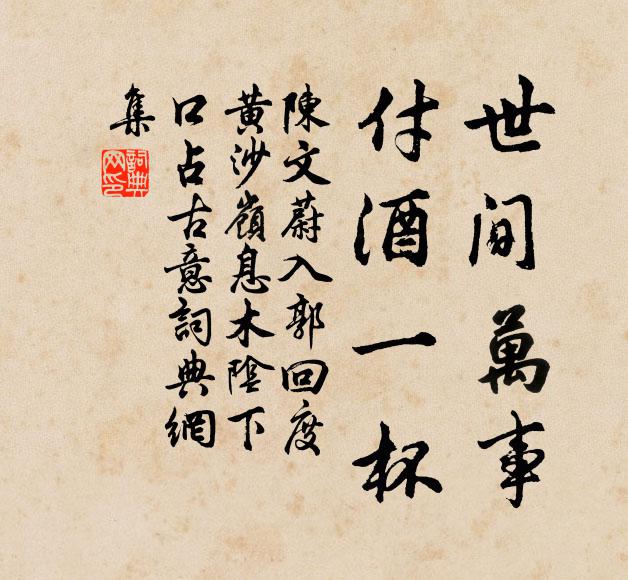 世間萬事
付酒一杯
陳文蔚入郭回度
黄沙嶺息木陰下
口占古意詞典網
集
詞典網印